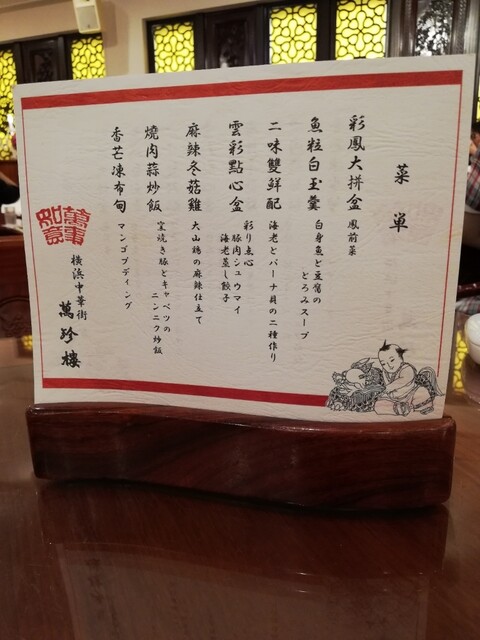 菜単
彩鳳大拼盆 鳳前菜
魚粒白玉羹 白身魚と豆腐の
とろみスープ
二味雙鮮配 海老とバーナ貝の二種作り
雲彩點心盒 彩り点心
豚肉シュウマイ
海老蒸し餃子
麻辣冬菇雞 大山鶏の麻辣仕立て
燒肉蒜炒飯 窯焼き豚とキャベツの
ニンニク炒飯
香芒凍布甸 マンゴプディング
萬事
如意
横浜中華街
萬珍樓